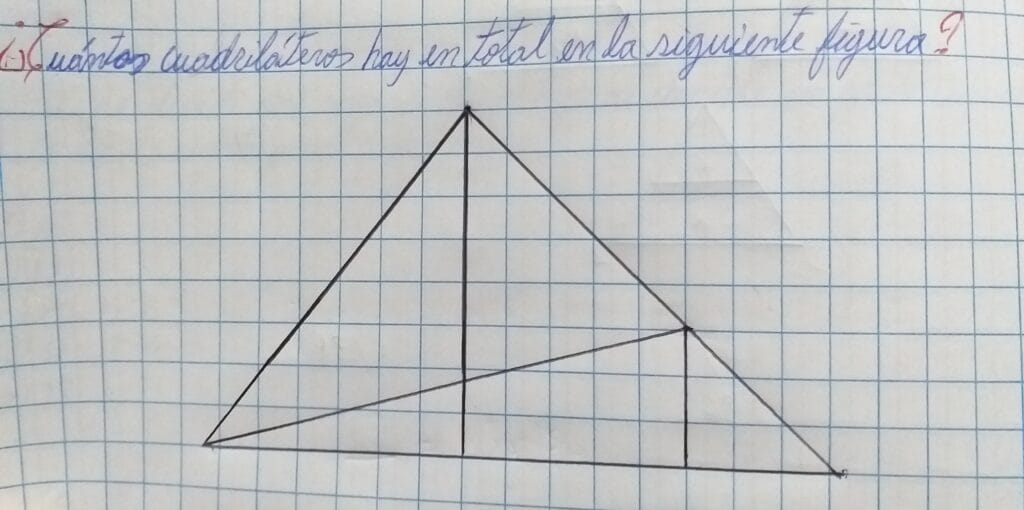 ¿Cuántos cuadriláteros hay en total en la siguiente figura?